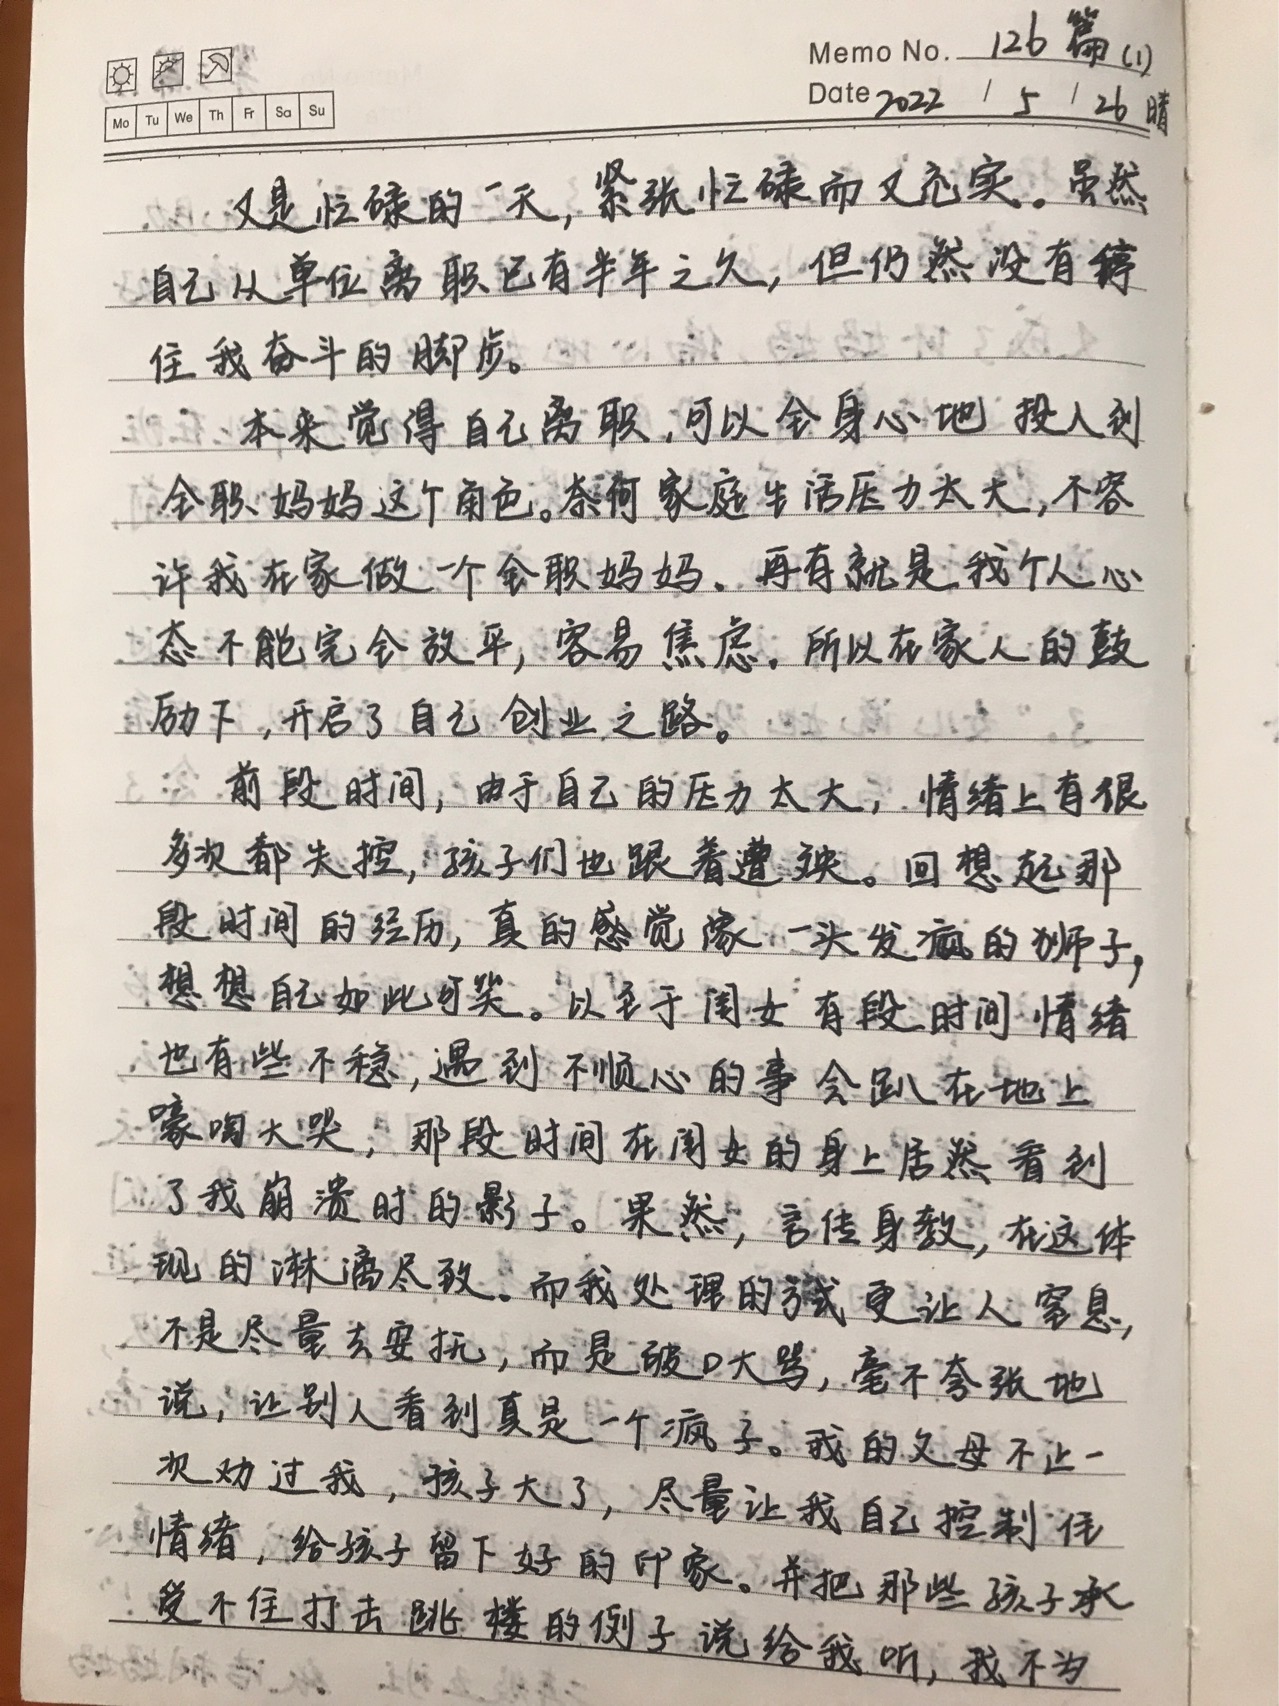 Memo No. 126篇(1)
Mo Tu We Th Fr Sa Su
Date 2022 / 5 / 26 晴
又是忙碌的一天，紧张忙碌而又充实。虽然
自己从单位离职已有半年之久，但仍然没有停
住我奋斗的脚步。
本来觉得自己离职，可以全身心地投入到
全职妈妈这个角色。奈何家庭生活压力太大，不容
许我在家做一个全职妈妈。再有就是我个人心
态不能完全放平，容易焦虑。所以在家人的鼓
励下，开启了自己创业之路。
前段时间，由于自己的压力太大，情绪上有很
多次都失控，孩子们也跟着遭殃。回想起那
段时间的经历，真的感觉像一头发疯的狮子，
想想自己如此可笑。以至于闺女有段时间情绪
也有些不稳，遇到不顺心的事会趴在地上
嚎啕大哭，那段时间在闺女的身上居然看到
了我崩溃时的影子。果然，言传身教，在这体
现的淋漓尽致。而我处理的方式更让人窒息，
不是尽量去安抚，而是破口大骂，毫不夸张地
说，让别人看到真是一个疯子。我的父母不止一
次劝过我，孩子大了，尽量让我自己控制住
情绪，给孩子留下好的印象。并把那些孩子承
受不住打击跳楼的例子说给我听，我不为